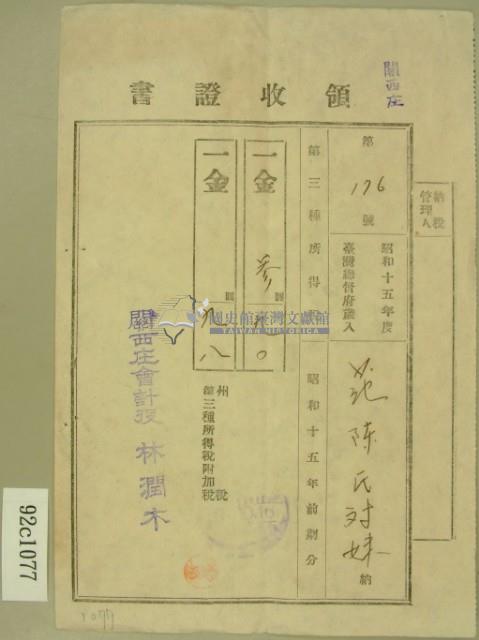 關西庄
領收證書
納稅
管理人
第176號
昭和十五年度
臺灣總督府歲入
范陳氏対妹 納
第三種所得稅
昭和十五年前期分
一金
圓
一金
圓
八
州稅
第三種所得稅附加稅
關西庄會計役 林潤木
國史館臺灣文獻館
TAIWAN HISTORICA
92c1077
1077